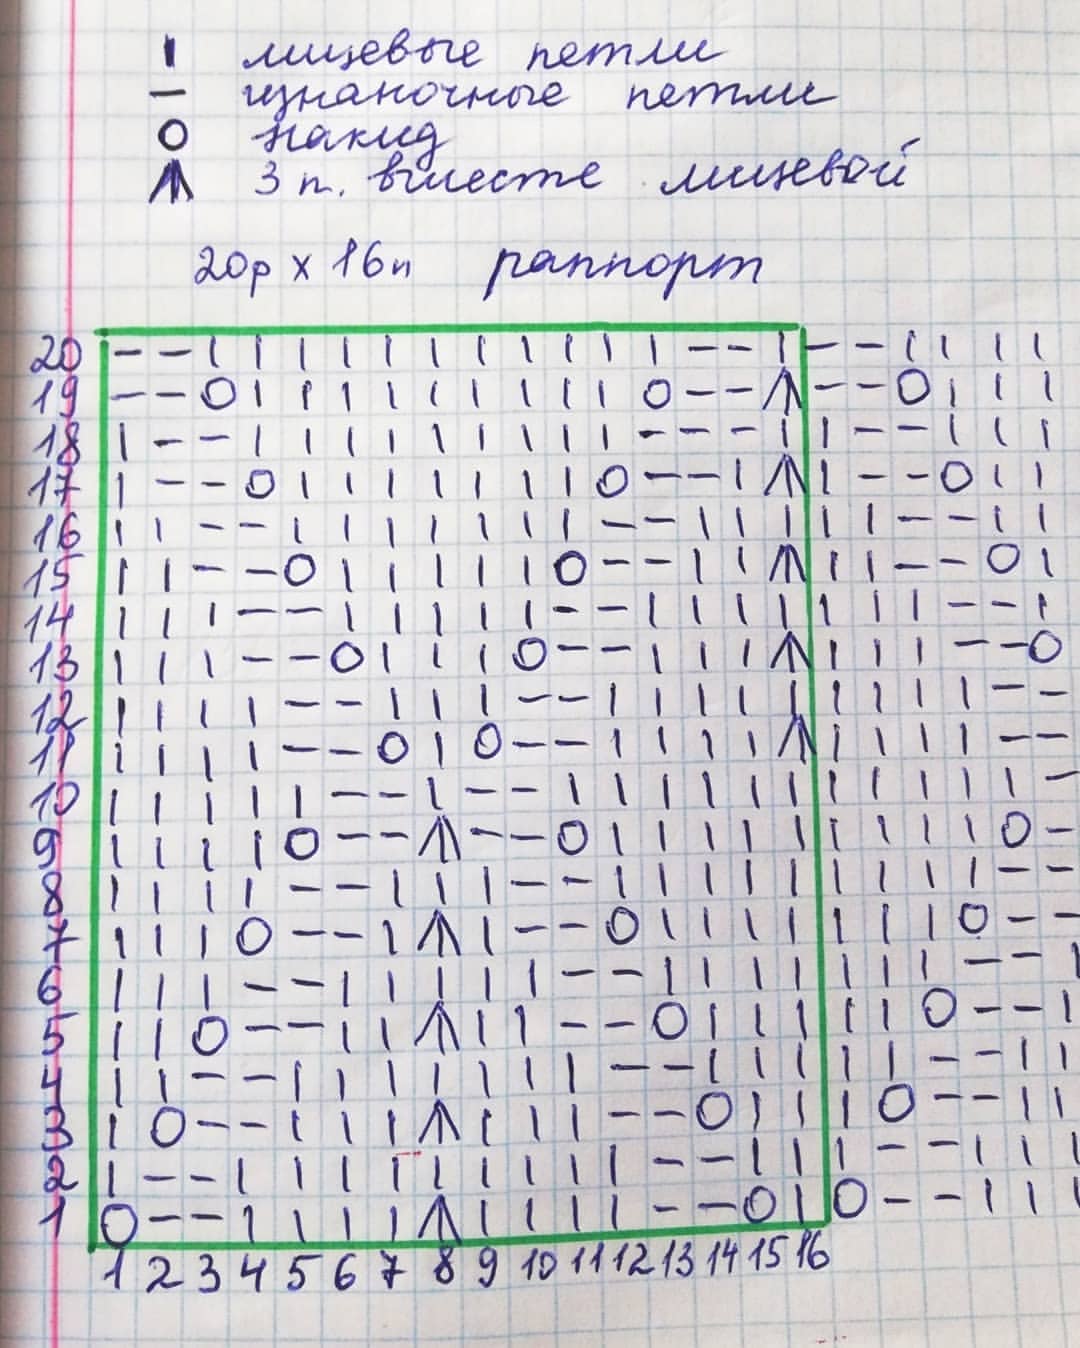 | лицевые петли
— изнаночные петли
O накид
⩚ 3 п. вместе лицевой
20р х 16п раппорт
20 — — | | | | | | | | | | | — — | — — | | | |
19 — — O | | | | | | | | | O — — ⩚ — — O | | |
18 | — — | | | | | | | | | — — — | | — — | | |
17 | — — O | | | | | | | O — — | ⩚ | — — O | |
16 | | — — | | | | | | | — — | | | | | — — | |
15 | | — — O | | | | | O — — | | ⩚ | | — — O |
14 | | | — — | | | | | — — | | | | | | | — — |
13 | | | — — O | | | O — — | | | ⩚ | | | — — O
12 | | | | — — | | | — — | | | | | | | | | — —
11 | | | | — — O | O — — | | | | ⩚ | | | | — —
10 | | | | | — — | — — | | | | | | | | | | | —
9 | | | | O — — ⩚ — — O | | | | | | | | | O —
8 | | | | — — | | | — — | | | | | | | | | — —
7 | | | O — — | ⩚ | — — O | | | | | | | O — —
6 | | | — — | | | | | — — | | | | | | | — — |
5 | | O — — | | ⩚ | | — — O | | | | | O — — |
4 | | — — | | | | | | | — — | | | | | — — | |
3 | O — — | | | ⩚ | | | — — O | | | O — — | |
2 | — — | | | | | | | | | — — | | | — — | | |
1 O — — | | | | ⩚ | | | | — — O | O — — | | |
1 2 3 4 5 6 7 8 9 10 11 12 13 14 15 16